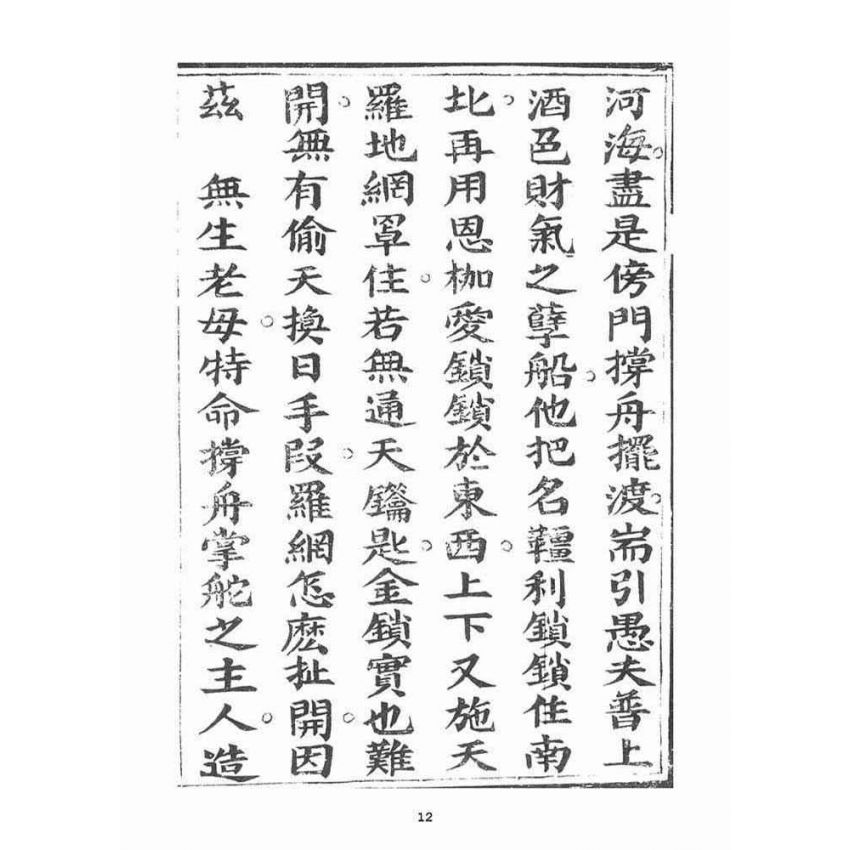 河海。盡是傍門撐舟擺渡。耑引愚夫普上
酒色財氣之孽船。他把名韁利鎖鎖住南
北。再用恩枷愛鎖鎖於東西。上下又施天
羅地網罩住。若無通天鑰匙。金鎖實也難
開。無有偷天換日手段。羅網怎麽扯開。因
茲　無生老母。特命撐舟掌舵之主人。造
12